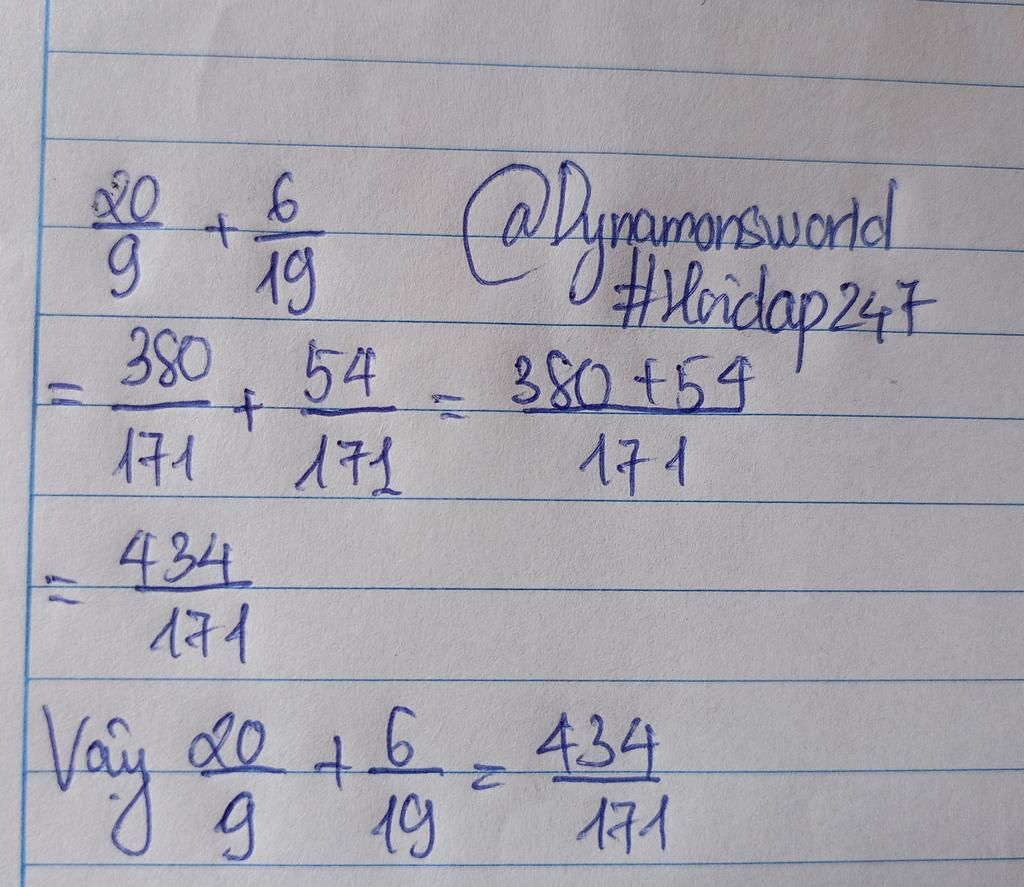 20/9 + 6/19 @Dynamonsworld
#Hoidap247
= 380/171 + 54/171 = 380+54/171
= 434/171
Vậy 20/9 + 6/19 = 434/171